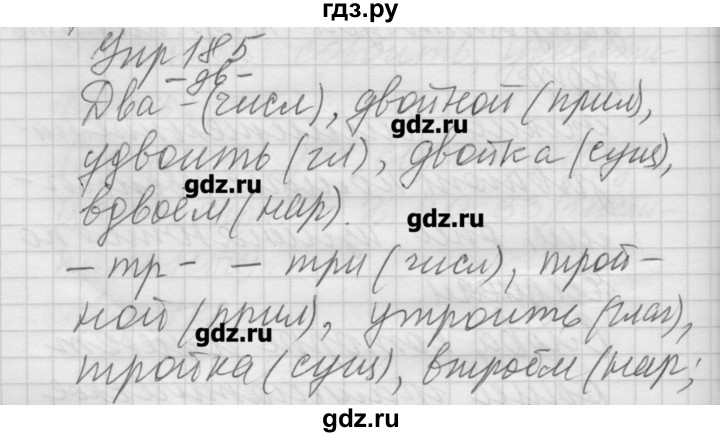 гдз.ру
Упр 185
-дв-
Два - (числ), двойной (прил),
gdz.ru
удвоить (гл), двойка (сущ),
gdz.ru
вдвоём (нар).
gdz.ru
- тр - - три (числ), трой-
ной (прил), утроить (глаг),
gdz.ru
тройка (сущ), втроём (нар;
gdz.ru